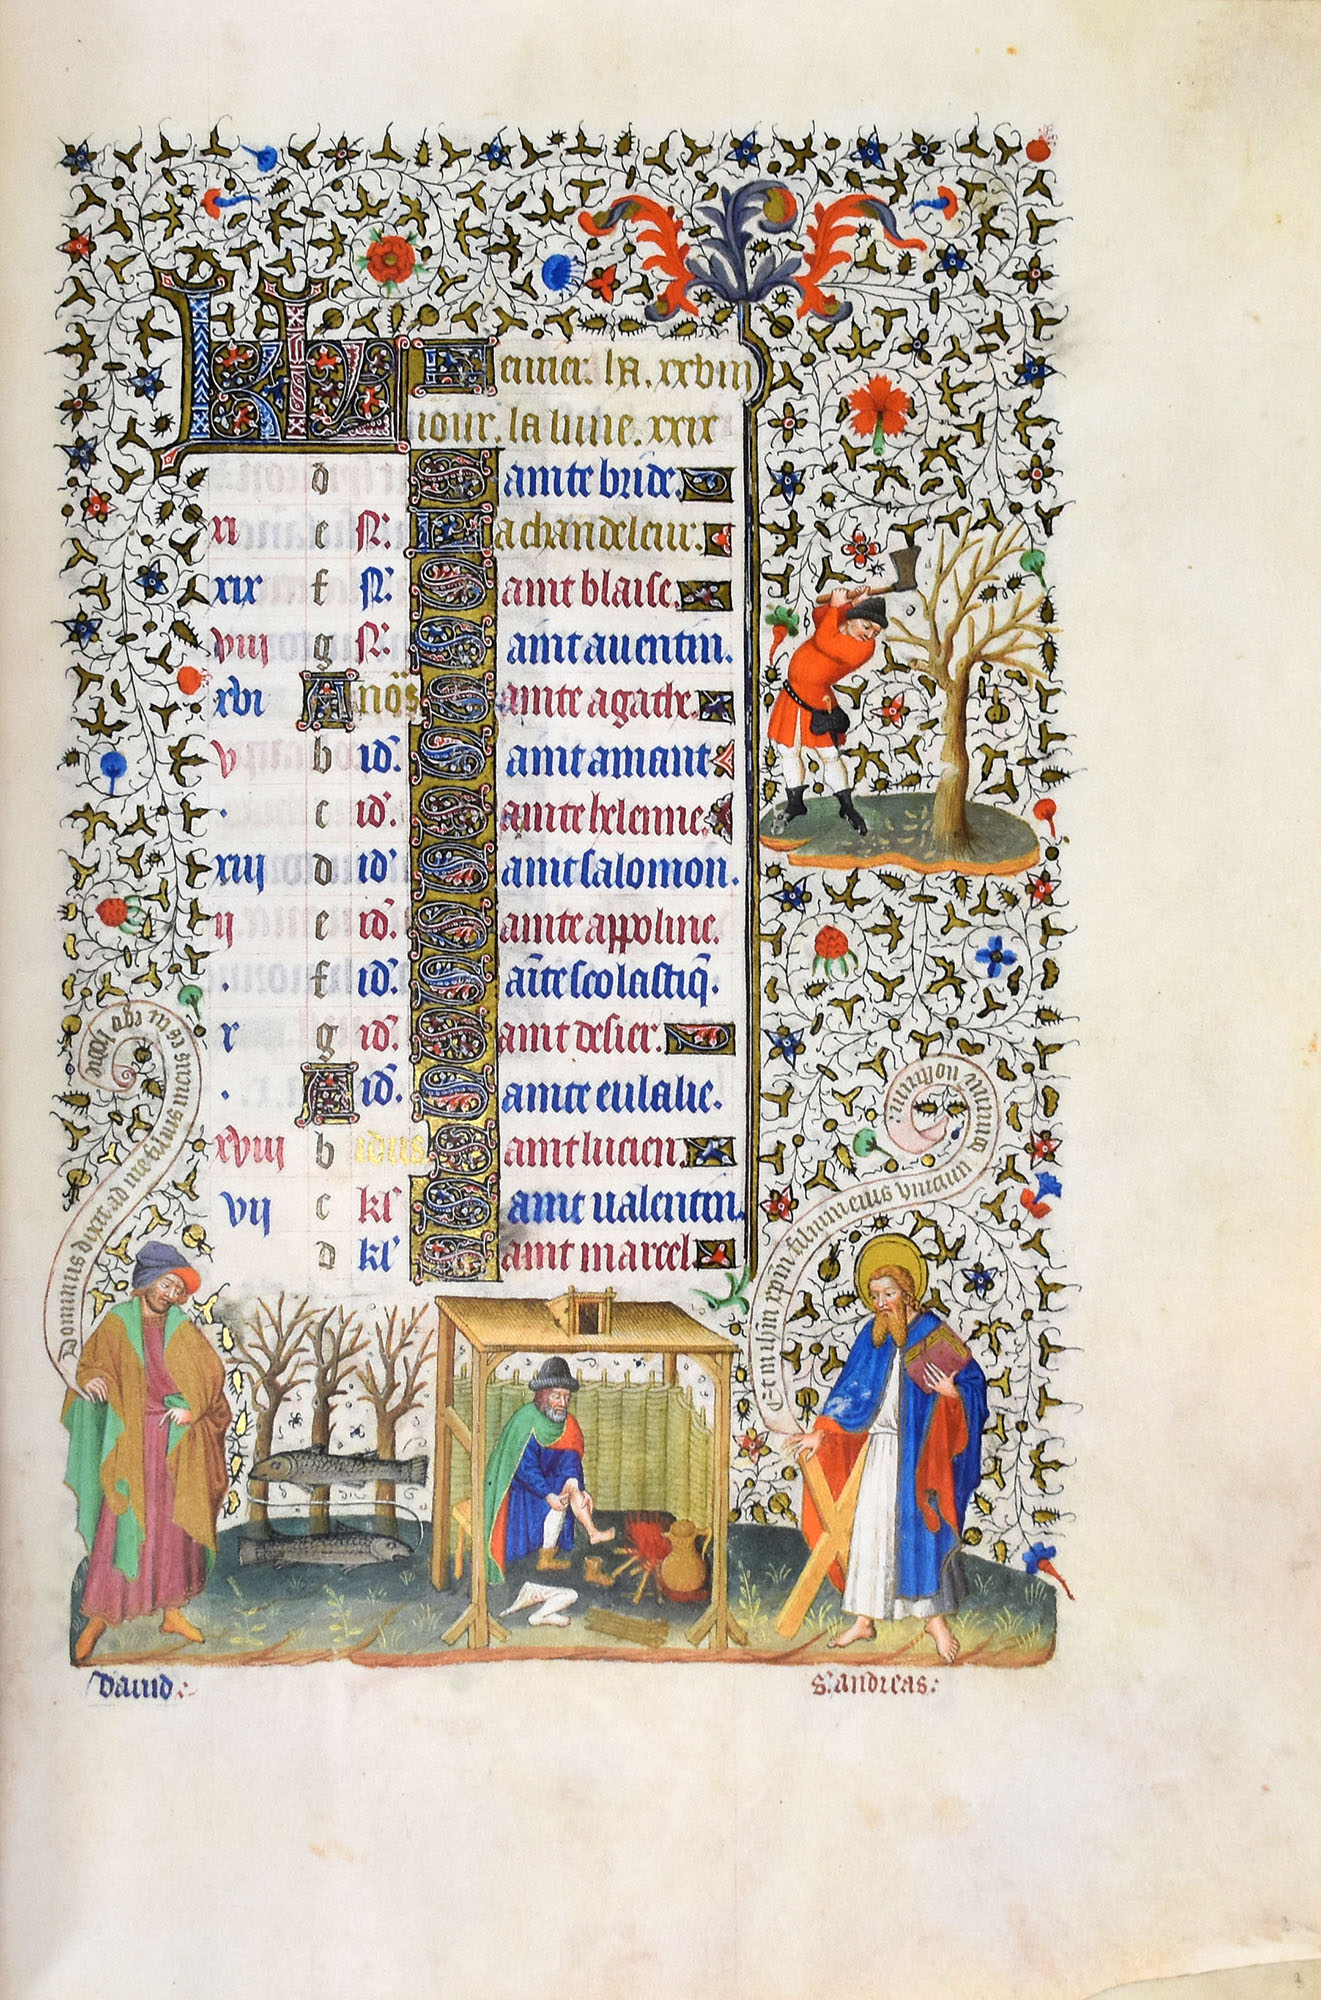 KL Feurier. la. xxviii
iour. la lune. xxix
d Sainte bride.
xi e N. La chandeleur.
xix f N. Saint blaise.
viii g N. Saint auentin.
xvi A noñs Sainte agathe.
v b id. Saint amant
. c id. Sainte helenne.
xiii d id. Saint salomon.
ii e id. Sainte appoline.
. f id. Saīte scolastiq̄.
x g id. Saint desier.
. A id. Sainte eulalie.
xviii b idus Saint lucien.
vii c kl' Saint ualentin.
d kl' Saint marcel
Dominus dixit ad me filius meus es tu ego hodie
Et in ih̄m xp̄m filium eius unicum dominum nostrum.
dauid:
S. andreas: